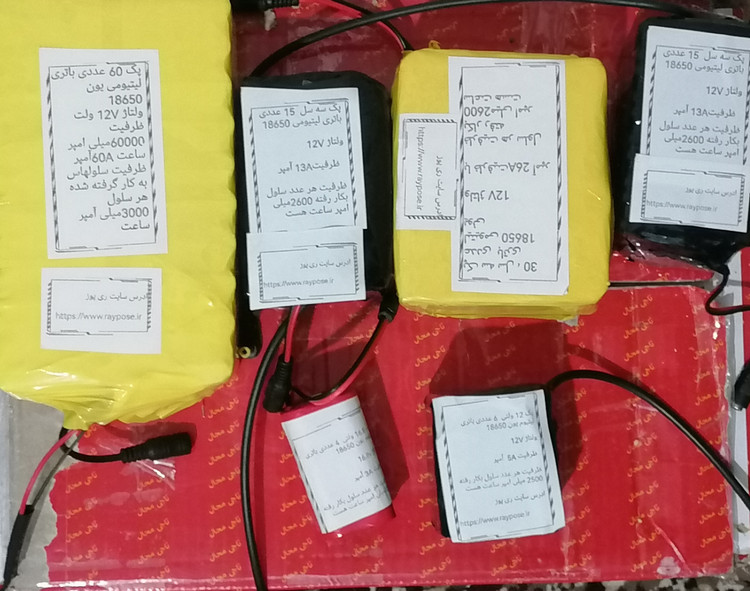 پک 60 عددی باتری
لیتیومی یون
18650
ولتاژ 12V ولت
ظرفیت
60000میلی امپر
ساعت 60Aآمپر
ظرفیت سلولهاس
به کار گرفته شده
هر سلول
3000میلی آمپر
ساعت
ادرس سایت ری پوز
https://www.raypose.ir
پک سه سل 15 عددی
باتری لیتیومی 18650
ولتاژ 12V
ظرفیت13A آمپر
ظرفیت هر عدد سلول
بکار رفته 2600میلی
امپر ساعت هست
ادرس سایت ری پوز
https://www.raypose.ir
پک سه سل ، 30
عددی باتری
لیتیومی 18650
یونی
ولتاژ 12V
با ظرفیت 26A آمپر
ظرفیت هر سلول
بکار رفته
2600میلی امپر
ساعت هست
ادرس سایت ری پوز
https://www.raypose.ir
پک سه سل 15 عددی
باتری لیتیومی 18650
ولتاژ 12V
ظرفیت13A آمپر
ظرفیت هر عدد سلول
بکار رفته 2600 میلی
امپر ساعت هست
ادرس سایت ری پوز
https://www.raypose.ir
ولتی 6 عددی باتری
یون 18650
آمپر
عدد سلول بکار رفته
میلی آمپر ساعت هست
پک 12 ولتی 6 عددی باتری
لیتیوم یون 18650
ولتاژ 12V
ظرفیت 5A آمپر
ظرفیت هر عدد سلول بکار رفته
2500 میلی آمپر ساعت هست
ادرس سایت ری پوز
https://www.raypose.ir